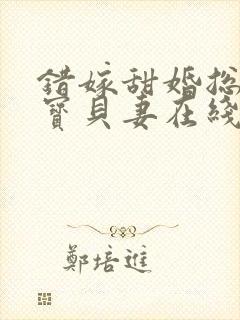 错嫁甜婚总
寶貝妻在綫
鄭培進